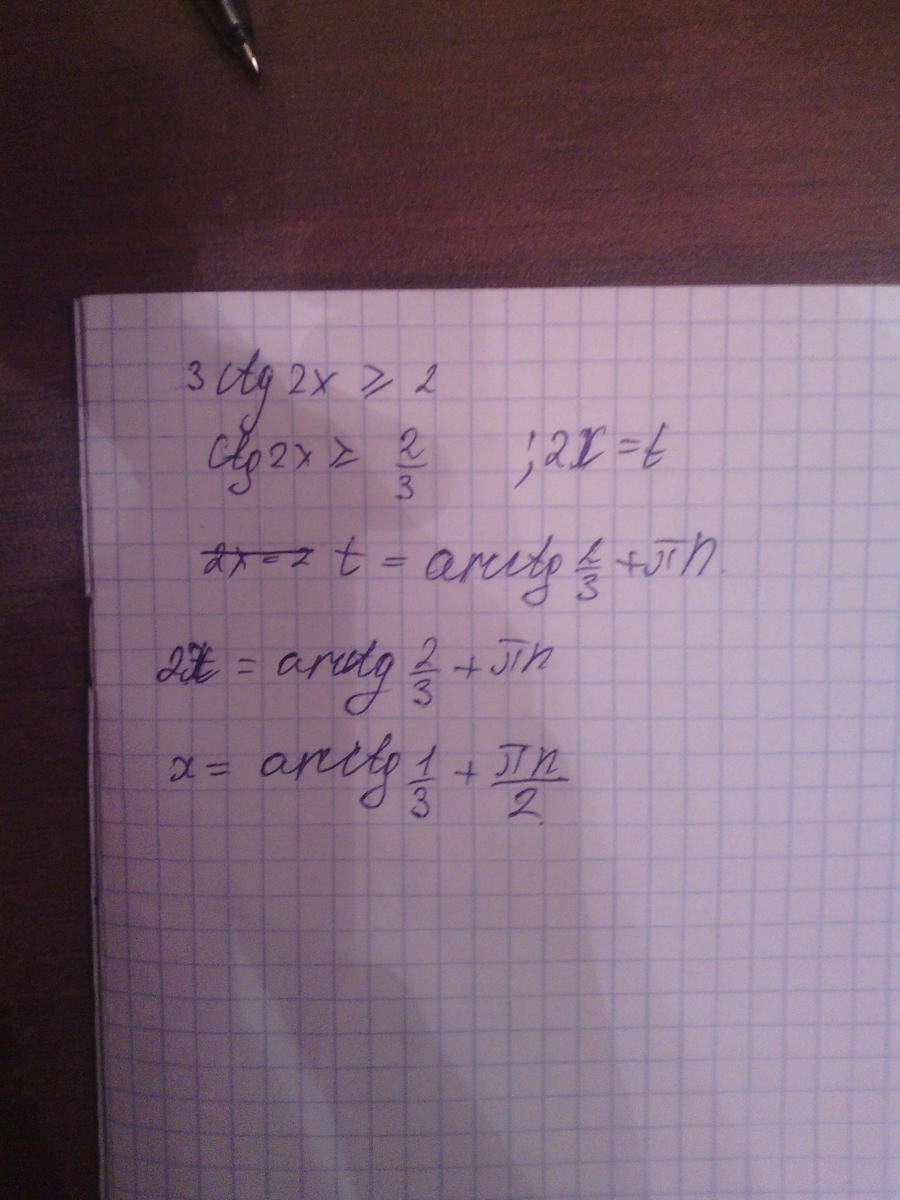 3 ctg 2x ≥ 2
ctg 2x ≥ 2/3 ; 2x = t
2x = 2 t = arcctg 2/3 + πn.
2x = arcctg 2/3 + πn
x = arcctg 1/3 + πn/2.